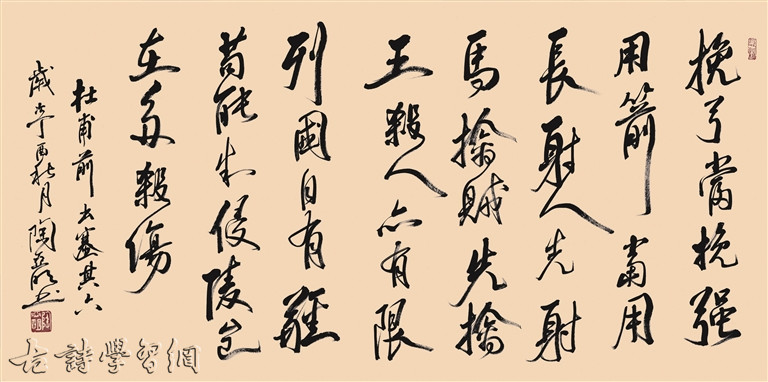 挽弓當挽强
用箭當用
長射人先射
馬擒賊先擒
王殺人亦有限
列國自有疆
苟能制侵陵豈
在多殺傷
杜甫前出塞其六
歲酉秋月陶書
詩學習網